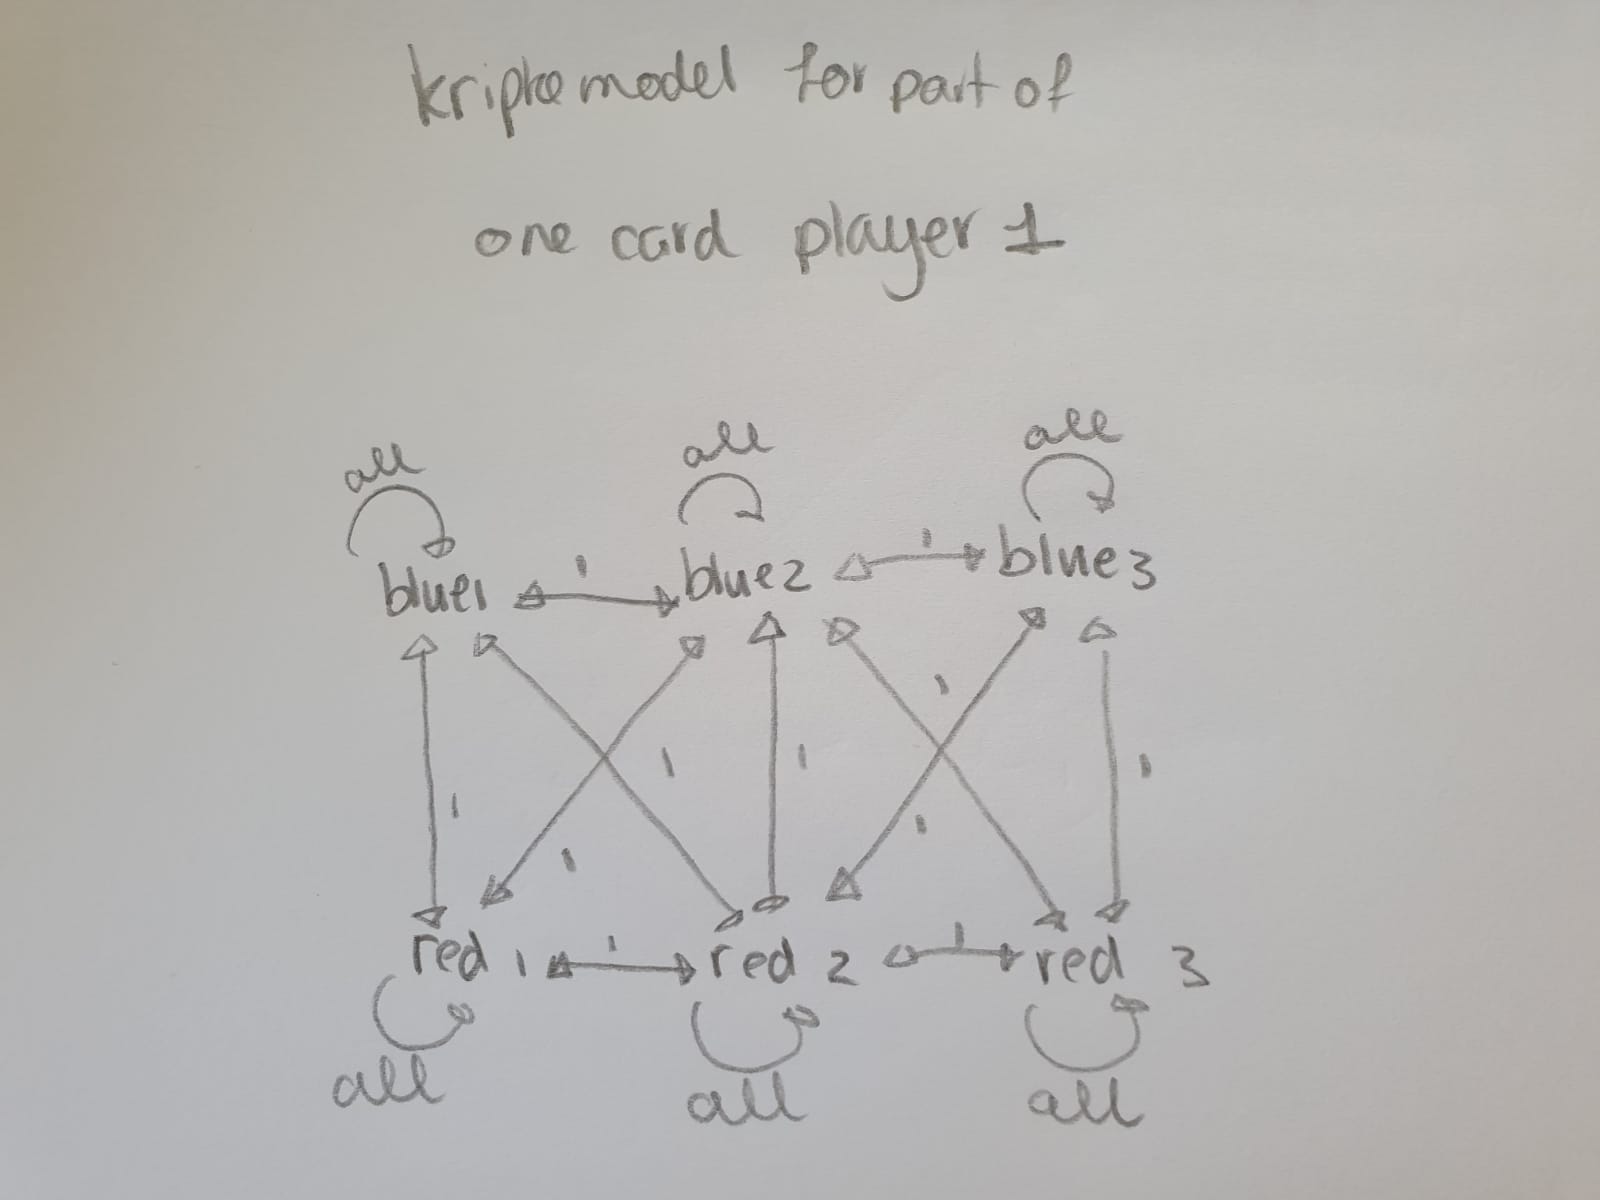 kripke model for part of
one card player 1
all all all
blue1 1 blue2 1 blue3
1
1 1 1 1
1 1
red 1 1 red 2 1 red 3
all all all